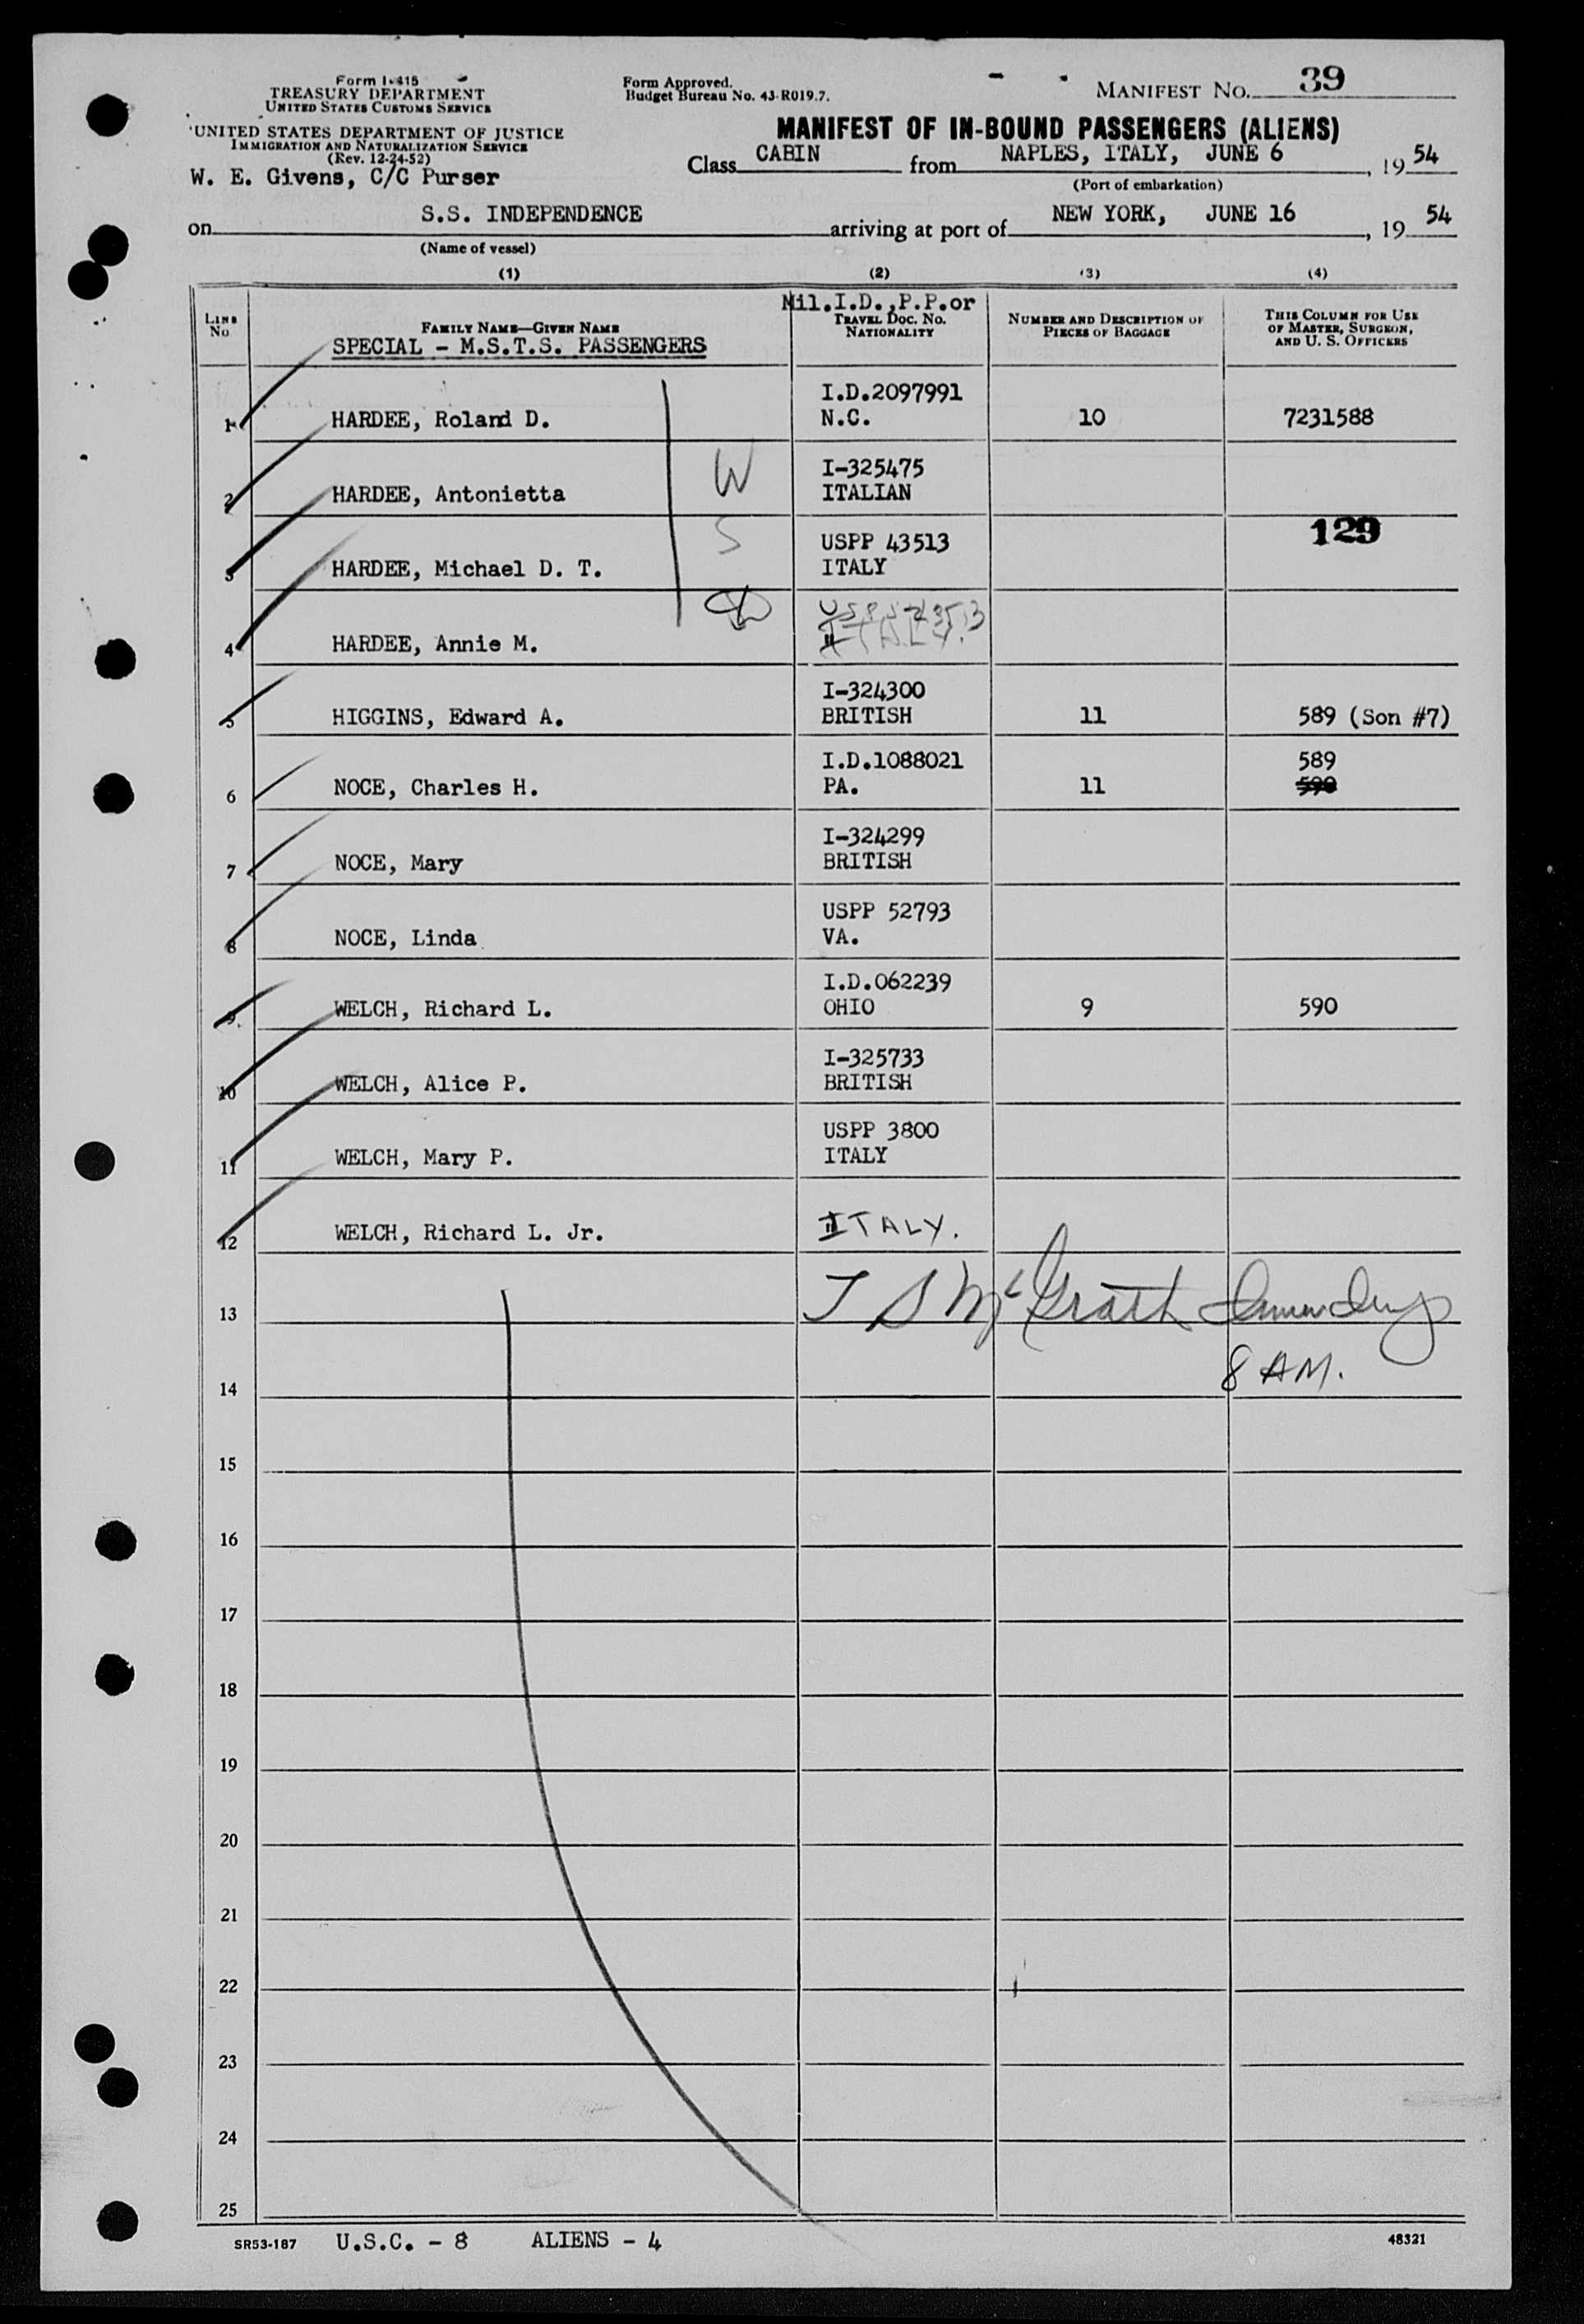 Form I-415
TREASURY DEPARTMENT
UNITED STATES CUSTOMS SERVICE
UNITED STATES DEPARTMENT OF JUSTICE
IMMIGRATION AND NATURALIZATION SERVICE
(Rev. 12-24-52)
W. E. Givens, C/C Purser
Form Approved.
Budget Bureau No. 43-R019.7.
MANIFEST NO. 39
MANIFEST OF IN-BOUND PASSENGERS (ALIENS)
Class CABIN from NAPLES, ITALY, JUNE 6, 1954
(Port of embarkation)
on S.S. INDEPENDENCE arriving at port of NEW YORK, JUNE 16, 1954
(Name of vessel)
(1) (2) (3) (4)
LINE No FAMILY NAME—GIVEN NAME Mil.I.D.,P.P.or TRAVEL DOC. NO. NATIONALITY NUMBER AND DESCRIPTION OF PIECES OF BAGGAGE THIS COLUMN FOR USE OF MASTER, SURGEON, AND U. S. OFFICERS
SPECIAL - M.S.T.S. PASSENGERS
I.D.2097991
1 HARDEE, Roland D. N.C. 10 7231588
W I-325475
2 HARDEE, Antonietta ITALIAN
129
S USPP 43513
3 HARDEE, Michael D. T. ITALY
4 HARDEE, Annie M. ITALY.
I-324300
5 HIGGINS, Edward A. BRITISH 11 589 (Son #7)
I.D.1088021 589
6 NOCE, Charles H. PA. 11 590
I-324299
7 NOCE, Mary BRITISH
USPP 52793
8 NOCE, Linda VA.
I.D.062239
9 WELCH, Richard L. OHIO 9 590
I-325733
10 WELCH, Alice P. BRITISH
USPP 3800
11 WELCH, Mary P. ITALY
12 WELCH, Richard L. Jr. ITALY.
13 T S McGrath
14 8 AM.
15
16
17
18
19
20
21
22
23
24
25
SR53-187 U.S.C. - 8 ALIENS - 4 48321